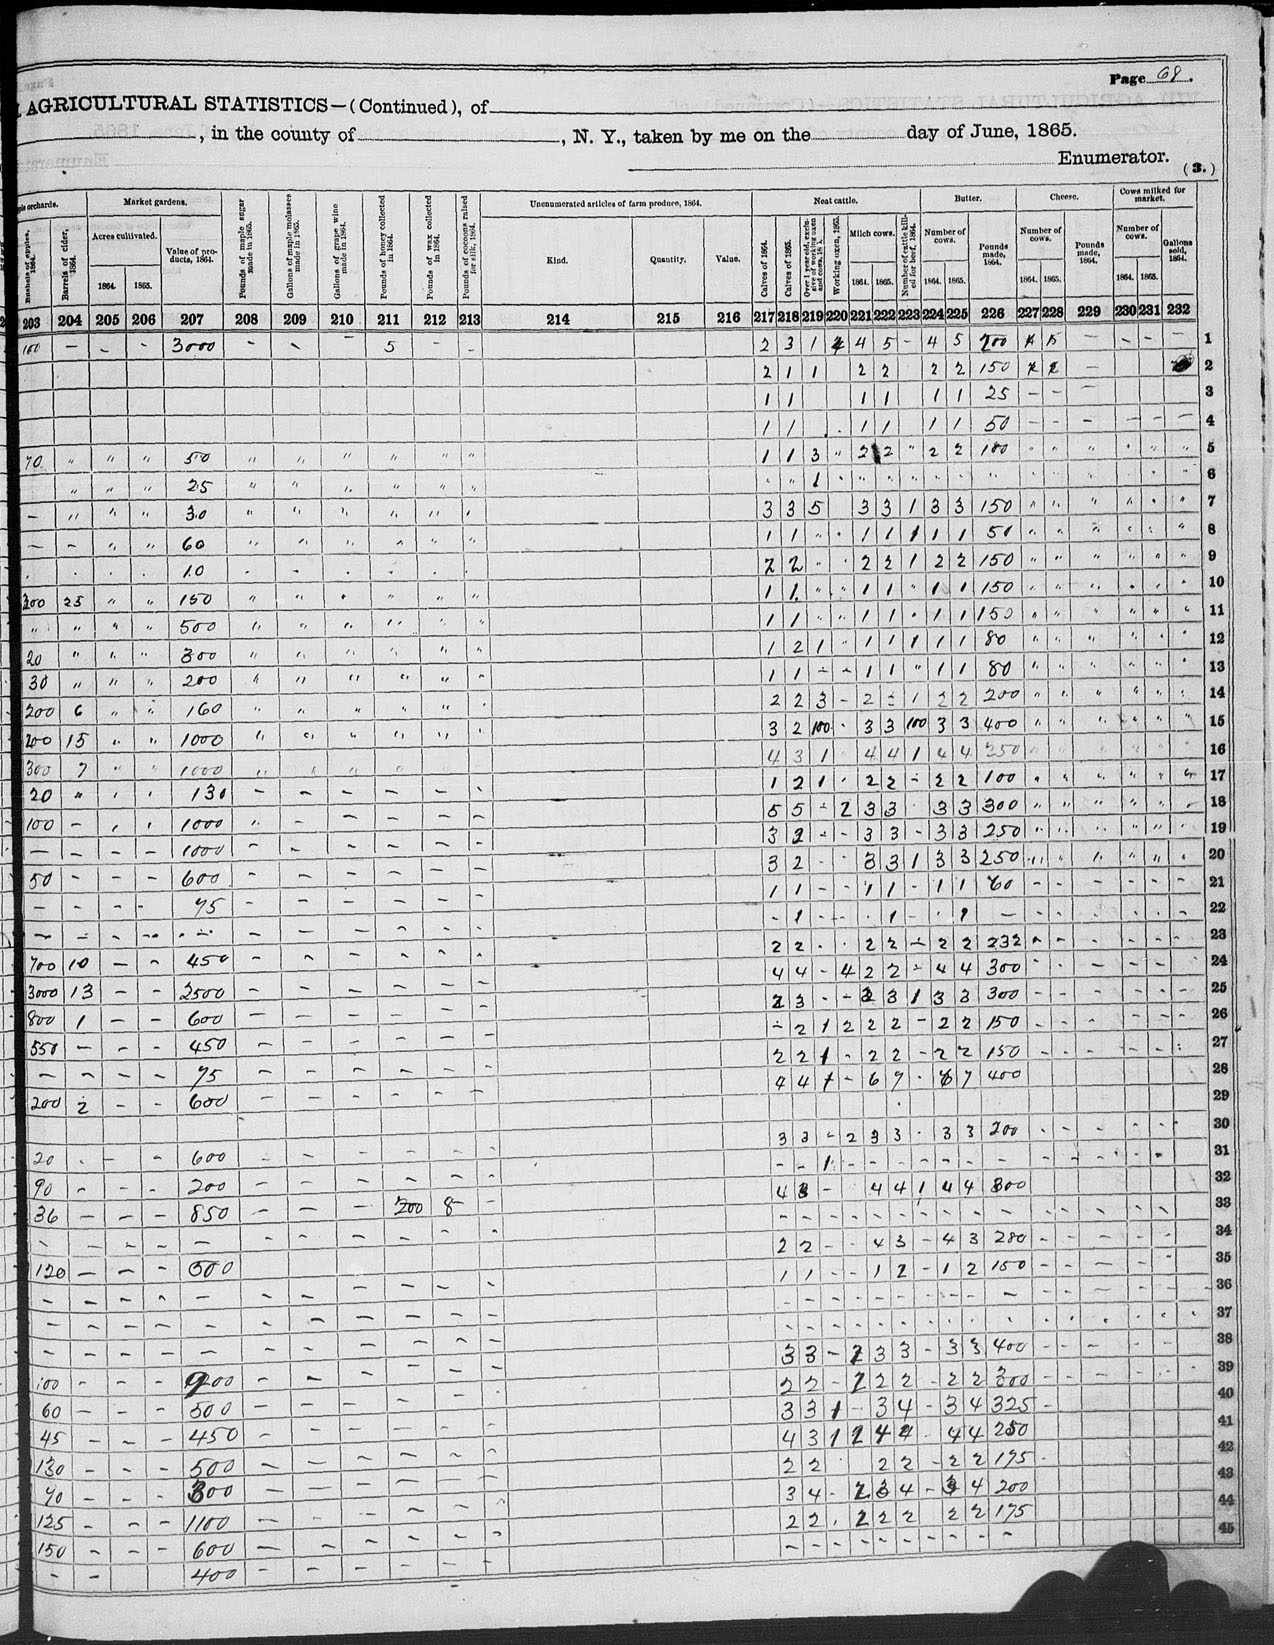 Page 68.
AGRICULTURAL STATISTICS—(Continued), of
, in the county of , N. Y., taken by me on the day of June, 1865.
Enumerator.
(3.)
orchards. Market gardens. Pounds of maple sugar made in 1865. Gallons of maple molasses made in 1865. Gallons of grape wine made in 1864. Pounds of honey collected in 1864. Pounds of wax collected in 1864. Pounds of cocoons raised for silk, 1864. Unenumerated articles of farm produce, 1864. Neat cattle. Butter. Cheese. Cows milked for market.
Bushels of apples, 1864. Barrels of cider, 1864. Acres cultivated. Value of products, 1864. Kind. Quantity. Value. Calves of 1864. Calves of 1865. Over 1 year old, exclusive of working oxen and cows, 1865. Working oxen, 1865. Milch cows. Number of cattle killed for beef, 1864. Number of cows. Pounds made, 1864. Number of cows. Pounds made, 1864. Number of cows. Gallons sold, 1864.
1864. 1865. 1864. 1865. 1864. 1865. 1864. 1865. 1864. 1865.
203 204 205 206 207 208 209 210 211 212 213 214 215 216 217 218 219 220 221 222 223 224 225 226 227 228 229 230 231 232
100 — — — 3000 — — — 5 — — 2 3 1 4 5 — 4 5 200 — — — — 1
2 1 1 2 2 2 2 150 — 2
1 1 1 1 1 1 25 — — — 3
1 1 1 1 1 1 50 — — — — — — 4
70 " " " 50 " " " " " " 1 1 3 " 2 2 " 2 2 100 " " " " " " 5
" " " 25 " " " " " " " " 1 " " " " " " " " " " " " 6
— " " " 30 " " " " " " 3 3 5 3 3 1 3 3 150 " " " " " " 7
— — " " 60 " " " " " " 1 1 " " 1 1 1 1 1 50 " " " " " " 8
10 2 2 " " 2 2 1 2 2 150 " " " " " " 9
200 25 " " 150 " " " " " " 1 1 " " 1 1 " 1 1 150 " " " " " " 10
" " " " 500 " " " " " " 1 1 " " 1 1 " 1 1 150 " " " " " " 11
20 " " " 300 " " " " " " 1 2 1 " 1 1 1 1 1 80 " " " " " " 12
30 " " " 200 " " " " " " 1 1 — — 1 1 " 1 1 80 " " " " " " 13
200 6 " " 160 " " " " " " 2 2 3 — 2 2 1 2 2 200 " " " " " " 14
200 15 " " 1000 " " " " " " 3 2 100 " 3 3 100 3 3 400 " " " " " " 15
300 7 " " 1000 " " " " 4 3 1 " 4 4 1 4 4 250 16
20 " " " 130 — — — — — — 1 2 1 " 2 2 — 2 2 100 " " " " " " 17
100 — " " 1000 " — — — — — 5 5 — 2 3 3 3 3 300 " " " " " " 18
— — — — 1000 — — — — — — 3 2 — — 3 3 — 3 3 250 " " " " " 19
50 — — — 600 — — — — — — 3 2 — — 3 3 1 3 3 250 " " " " " " 20
— — — — 75 — — — — — — 1 1 — — 1 1 — 1 1 60 — — — — — — 21
— — — — — — — — — — — — 1 — — — 1 — — 1 — — — — — — — 22
700 10 — — 450 — — — — — — 2 2 — — 2 2 — 2 2 232 — — — — — — 23
3000 13 — — 2500 — — — — — — 4 4 — 4 2 2 — 4 4 300 — — — — — — 24
800 1 — — 600 — — — — — — 2 3 — — 3 3 1 3 3 300 — — — — — — 25
550 — — — 450 — — — — — — — 2 1 2 2 2 — 2 2 150 — — — — — — 26
— — — — 75 — — — — — — 2 2 1 — 2 2 — 2 2 150 — — — — — — 27
200 2 — — 600 — — — — — — 4 4 1 — 6 7 — 6 7 400 28
29
20 — — — 600 — — — — — — 3 3 — 2 3 3 — 3 3 200 — — — — — — 30
90 — — — 200 — — — — — — — — 1 — — — — — — — — — — — — 31
36 — — — 850 — — — 200 8 — 4 3 — 4 4 1 4 4 300 32
— — — — — — — — — — — — — — — — — — — — — — — — — — 33
120 — — — 500 2 2 — — 4 3 — 4 3 280 — — — — — — 34
— — — — — — — — — — — 1 1 — — 1 2 — 1 2 150 — — — — — 35
— — — — — — — — — — — — — — — — — — — — — — — — — — 36
— — — — — — — — — — — — — — — — — — — — — — — — — — 37
100 — — — 900 — — — — — — 3 3 — 2 3 3 — 3 3 400 — — — — — 38
60 — — — 500 — — — — — — 2 2 — 2 2 2 — 2 2 300 39
45 — — — 450 — — — — — — 3 3 1 — 3 4 — 3 4 325 — 40
130 — — — 500 — — — — — — 4 3 1 2 4 4 — 4 4 250 41
70 — — — 300 — — — — — — 2 2 2 2 — 2 2 175 — 42
125 — — — 1100 — — — — — — 3 4 — 2 3 4 — 3 4 200 43
150 — — — 600 — — — — — — 2 2 — 2 2 2 2 2 175 44
— — 400 — — — — — — — — — — — — — — — — 45